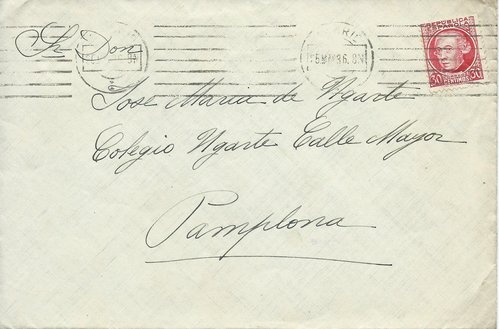 Sr. Don
Jose Maria de Ugarte
Colegio Ugarte Calle Mayor
Pamplona
REPUBLICA
ESPAÑOLA
30 30